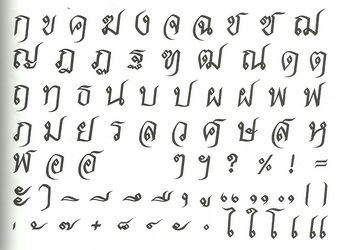 ก ข ค ฆ ง จ ฉ ช ซ ฌ
ญ ฎ ฏ ฐ ฑ ฒ ณ ด ต
ถ ท ธ น บ ป ผ ฝ พ ฟ
ภ ม ย ร ล ว ศ ษ ส ห
ฬ อ ฮ ๆ ฯ ? % ! =
ะ า ิ ี ึ ื ุ ู
่ ้ ๊ ๋ ็ ์ ไ ใ โ แ